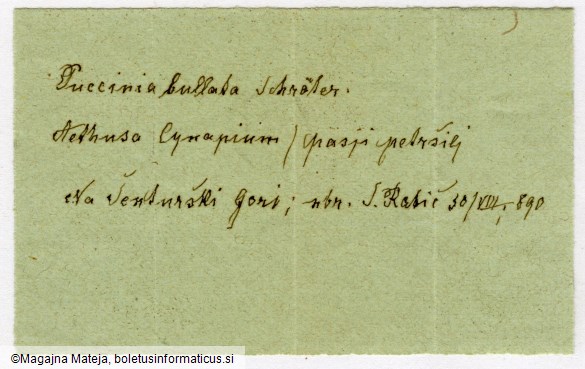 Puccinia bullata Schröter.
Aethusa Cynapium / pasji petršilj
Na Šenturški Gori; nbr. S. Robič 30/VIII, 890
©Magajna Mateja, boletusinformaticus.si